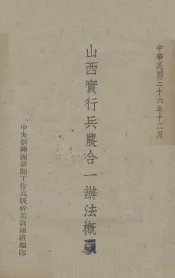 中華民國三十六年十二月
山西實行兵農合一辦法概要
中央訓練團新聞工作高級幹部訓練班編印